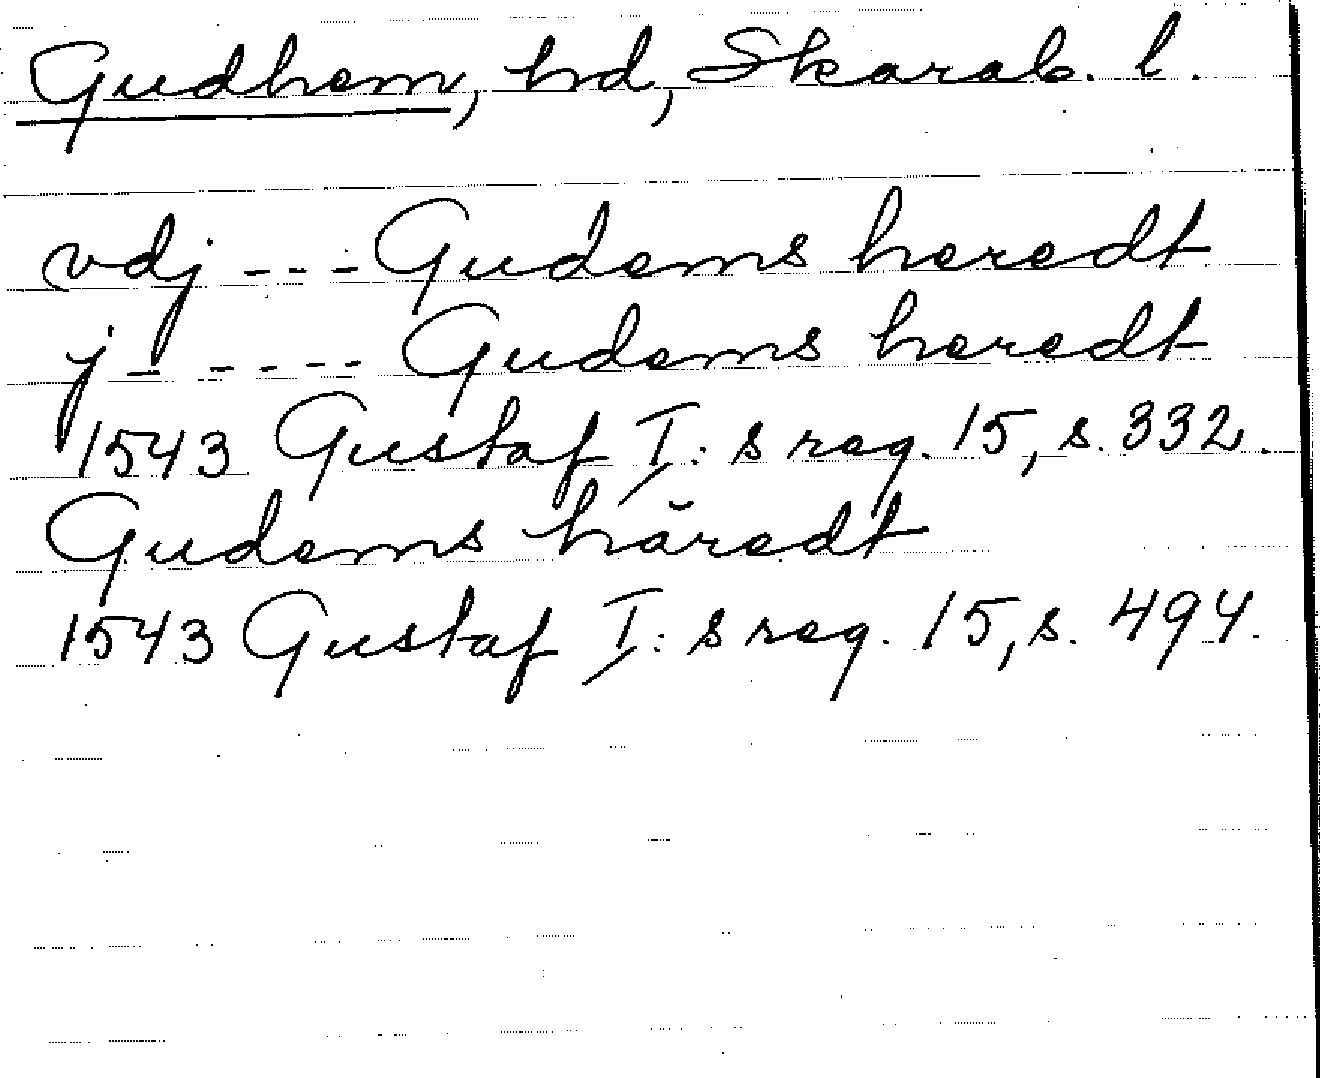 Gudhem, hd, Skarab. l.
vdj --- Gudems heredt
j ----- Gudems heredt
1543 Gustaf I:s reg. 15, s. 332.
Gudems häredt
1543 Gustaf I:s reg. 15, s. 494.